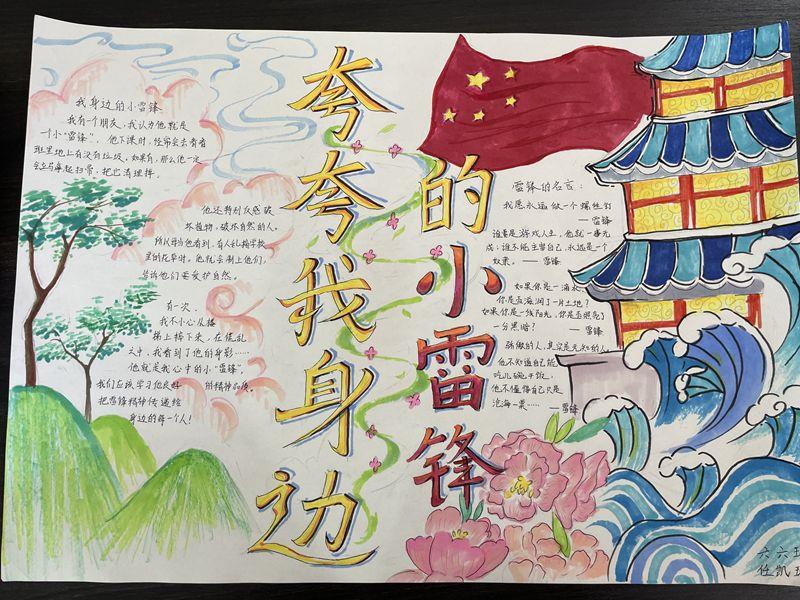 夸夸我身边
的小雷锋
我身边的小雷锋
我有一个朋友,我认为他就是
一个小“雷锋”。他下课时,经常会去看看
班里地上有没有垃圾,如果有,那么他一定
会立马拿起扫帚,把它清理掉。
他还特别反感破
坏植物,破坏自然的人,
所以每当他看到,有人乱摘学校
里的花草时,他就会制止他们,
告诉他们要爱护自然。
有一次,
我不小心从楼
梯上摔下来,在慌乱
之中,我看到了他的身影……
他就是我心中的小“雷锋”,
我们应该学习他良好的精神品质,
把雷锋精神传递给
身边的每一个人!
雷锋的名言:
我愿永远做一个螺丝钉
—雷锋
谁要是游戏人生,他就一事无
成;谁不能主宰自己,永远是一个
奴隶。—雷锋
如果你是一滴水,
你是否滋润了一片土地?
如果你是一线阳光,你是否照亮了
一分黑暗?—雷锋
骄傲的人,其实是无知的人,
他不知道自己能
吃几碗干饭,
他不懂得自己只是
沧海一粟……—雷锋
六六班
任凯